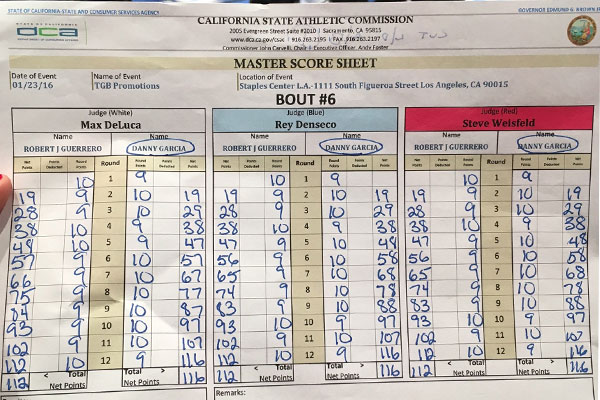 STATE OF CALIFORNIA-STATE AND CONSUMER SERVICES AGENCY GOVERNOR EDMUND G. BROWN JR
STATE OF CALIFORNIA
dca
DEPARTMENT OF CONSUMER AFFAIRS
CALIFORNIA STATE ATHLETIC COMMISSION
2005 Evergreen Street Suite #2010 | Sacramento, CA 95815
www.dca.ca.gov/csac | 916.263.2195 | FAX 916.263.2197
Commissioner John Carvelli, Chair | Executive Officer, Andy Foster
MASTER SCORE SHEET
Date of Event Name of Event Location of Event
01/23/16 TGB Promotions Staples Center L.A.-1111 South Figueroa Street Los Angeles, CA 90015
BOUT #6
Judge (White) Judge (Blue) Judge (Red)
Max DeLuca Rey Denseco Steve Weisfeld
Name Name Name Name Name Name
ROBERT J GUERRERO DANNY GARCIA ROBERT J GUERRERO DANNY GARCIA ROBERT J GUERRERO DANNY GARCIA
Net Points Points Deducted Round Points Round Round Points Points Deducted Net Points Net Points Points Deducted Round Points Round Round Points Points Deducted Net Points Net Points Points Deducted Round Points Round Round Points Points Deducted Net Points
10 1 9 10 1 9 10 1 9
19 9 2 10 19 19 9 2 10 19 19 9 2 10 19
28 9 3 10 29 28 9 3 10 29 28 9 3 10 29
38 10 4 9 38 38 10 4 9 38 38 10 4 9 38
48 10 5 9 47 47 9 5 10 48 47 9 5 10 48
57 9 6 10 57 56 9 6 10 58 56 9 6 10 58
66 9 7 10 67 65 9 7 10 68 65 9 7 10 68
75 9 8 10 77 74 9 8 10 78 74 9 8 10 78
84 9 9 10 87 83 9 9 10 88 83 9 9 10 88
93 9 10 10 97 93 10 10 9 97 93 10 10 9 97
102 9 11 10 107 102 9 11 10 107 102 9 11 10 107
112 10 12 9 116 112 10 12 9 116 112 10 12 9 116
112 < Total > 116 112 < Total > 116 112 < Total > 116
Net Points Net Points Net Points
Remarks: Remarks: